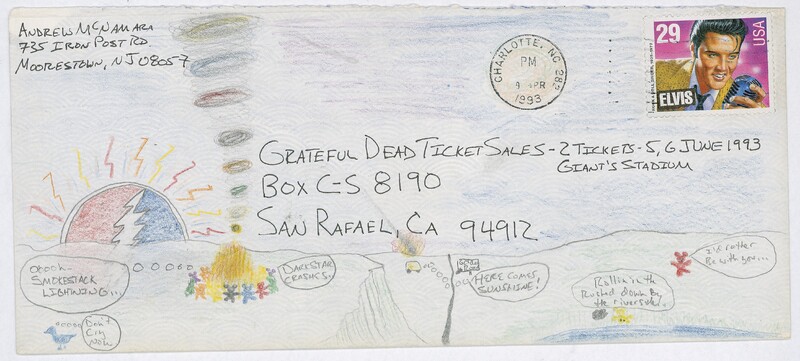 ANDREW MCNAMARA
735 IRON POST RD.
MOORESTOWN, NJ 08057
CHARLOTTE, NC 282
PM
APR
1993
29
USA
ELVIS
GRATEFUL DEAD TICKET SALES - 2 TICKETS - 5, 6 JUNE 1993
GIANT'S STADIUM
BOX C-S 8190
SAN RAFAEL, CA 94912
OOOOH...
SMOKESTACK
LIGHTNING...
DARKSTAR
CRASHES.
HERE COMES
SUNSHINE!
I'd rather
Be with you...
Rollin in the
Rushes down By
the riverside.
Don't
Cry
Now